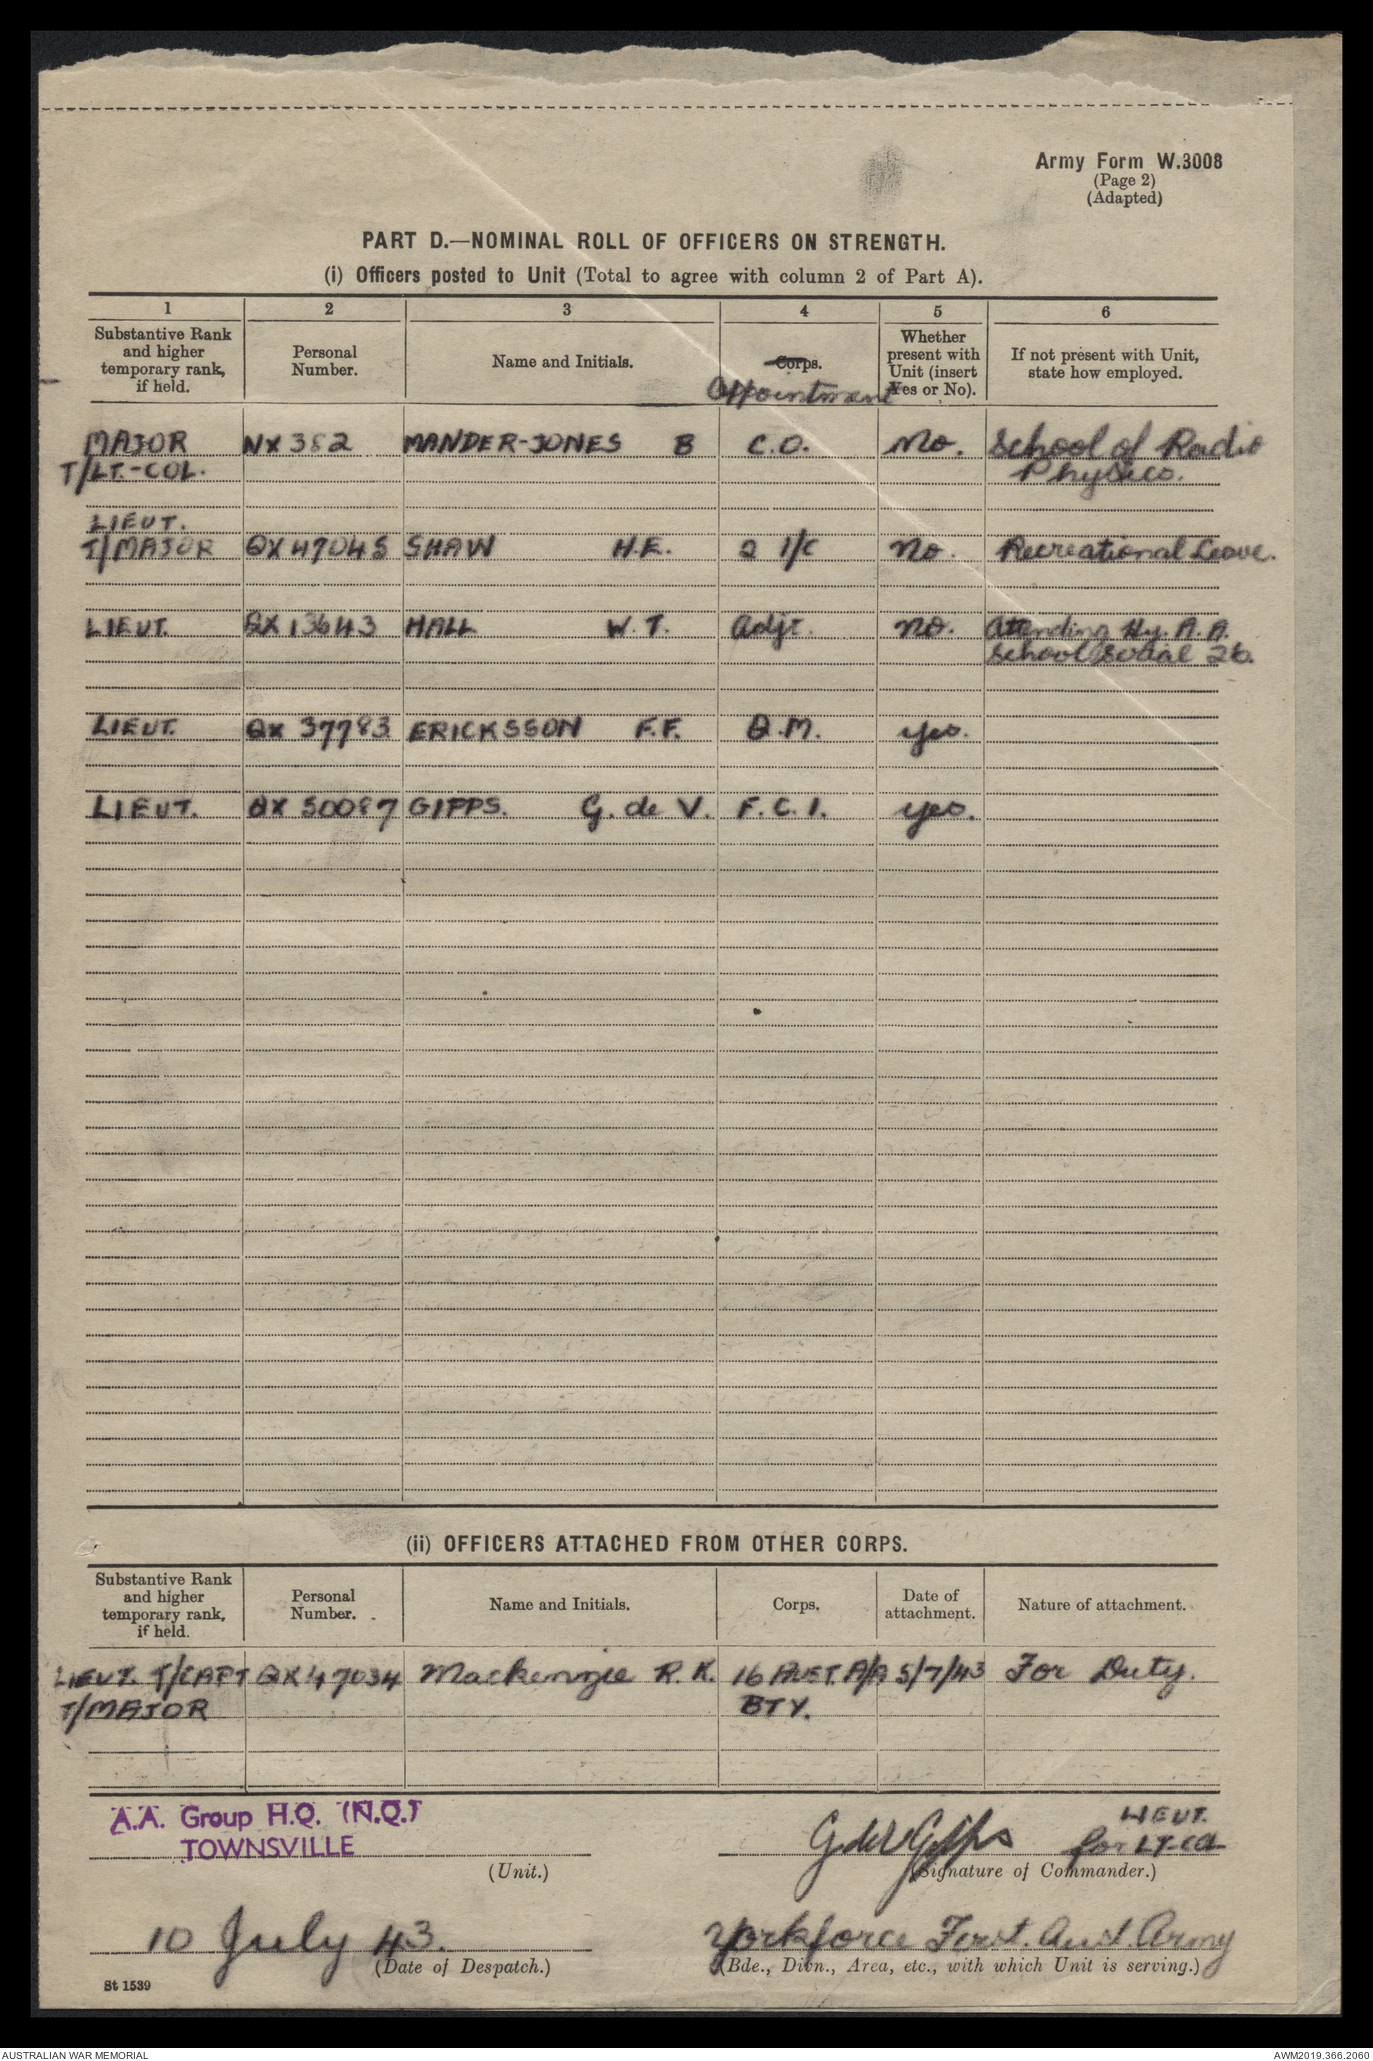 Army Form W.3008
(Page 2)
(Adapted)
PART D.—NOMINAL ROLL OF OFFICERS ON STRENGTH.
(i) Officers posted to Unit (Total to agree with column 2 of Part A).
1 2 3 4 5 6
Substantive Rank and higher temporary rank, if held. Personal Number. Name and Initials. Corps. Appointment Whether present with Unit (insert Yes or No). If not present with Unit, state how employed.
MAJOR NX 382 MANDER-JONES B C.O. No. School of Radio
T/LT.-COL. Physics.
LIEUT.
T/MAJOR QX 47045 SHAW H.E. 2 I/C No. Recreational Leave.
LIEUT. QX 13643 HALL W.T. Adjt. No. Attending Hy. A.A.
School 26.
LIEUT. QX 37783 ERICKSSON F.F. Q.M. yes.
LIEUT. QX 50087 GIPPS. G. de V. F.C.I. yes.
(ii) OFFICERS ATTACHED FROM OTHER CORPS.
Substantive Rank and higher temporary rank, if held. Personal Number. Name and Initials. Corps. Date of attachment. Nature of attachment.
LIEUT. T/CAPT QX 47034 Mackenzie R.K. 16 A/A 5/7/43 For Duty.
T/MAJOR BTY.
A.A. Group H.Q. (N.Q.)
TOWNSVILLE
(Unit.)
G de V Gipps LIEUT.
for LT-Col
(Signature of Commander.)
10 July 43.
(Date of Despatch.)
Yorkforce First. Aust. Army
(Bde., Divn., Area, etc., with which Unit is serving.)
St 1539
AUSTRALIAN WAR MEMORIAL
AWM2019.366.2060